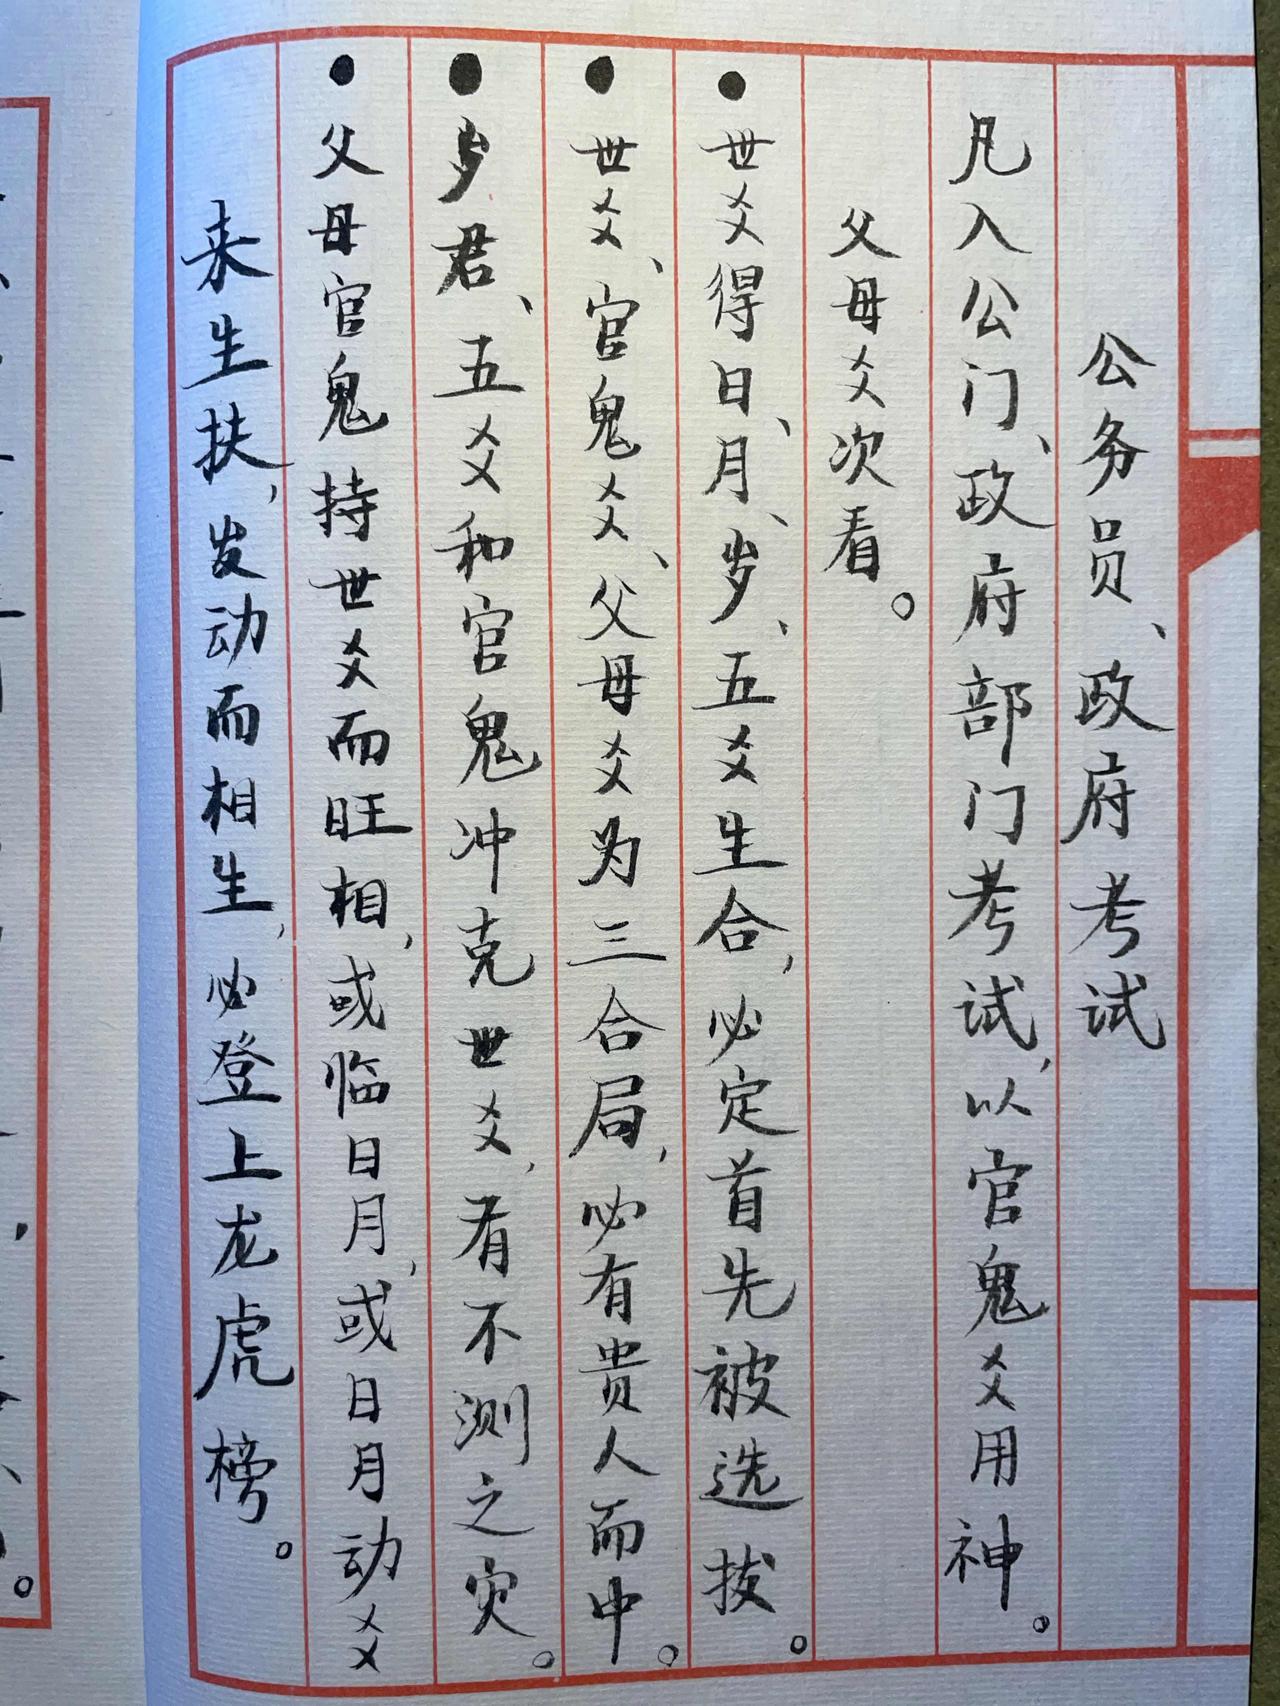 公务员、政府考试
凡入公门、政府部门考试,以官鬼爻用神。
父母爻次看。
●世爻得日、月、岁、五爻生合,必定首先被选拔。
●世爻、官鬼爻、父母爻为三合局,必有贵人而中。
●岁君、五爻和官鬼冲克世爻,有不测之灾。
●父母官鬼持世爻而旺相,或临日月,或日月动爻
来生扶,发动而相生,必登上龙虎榜。